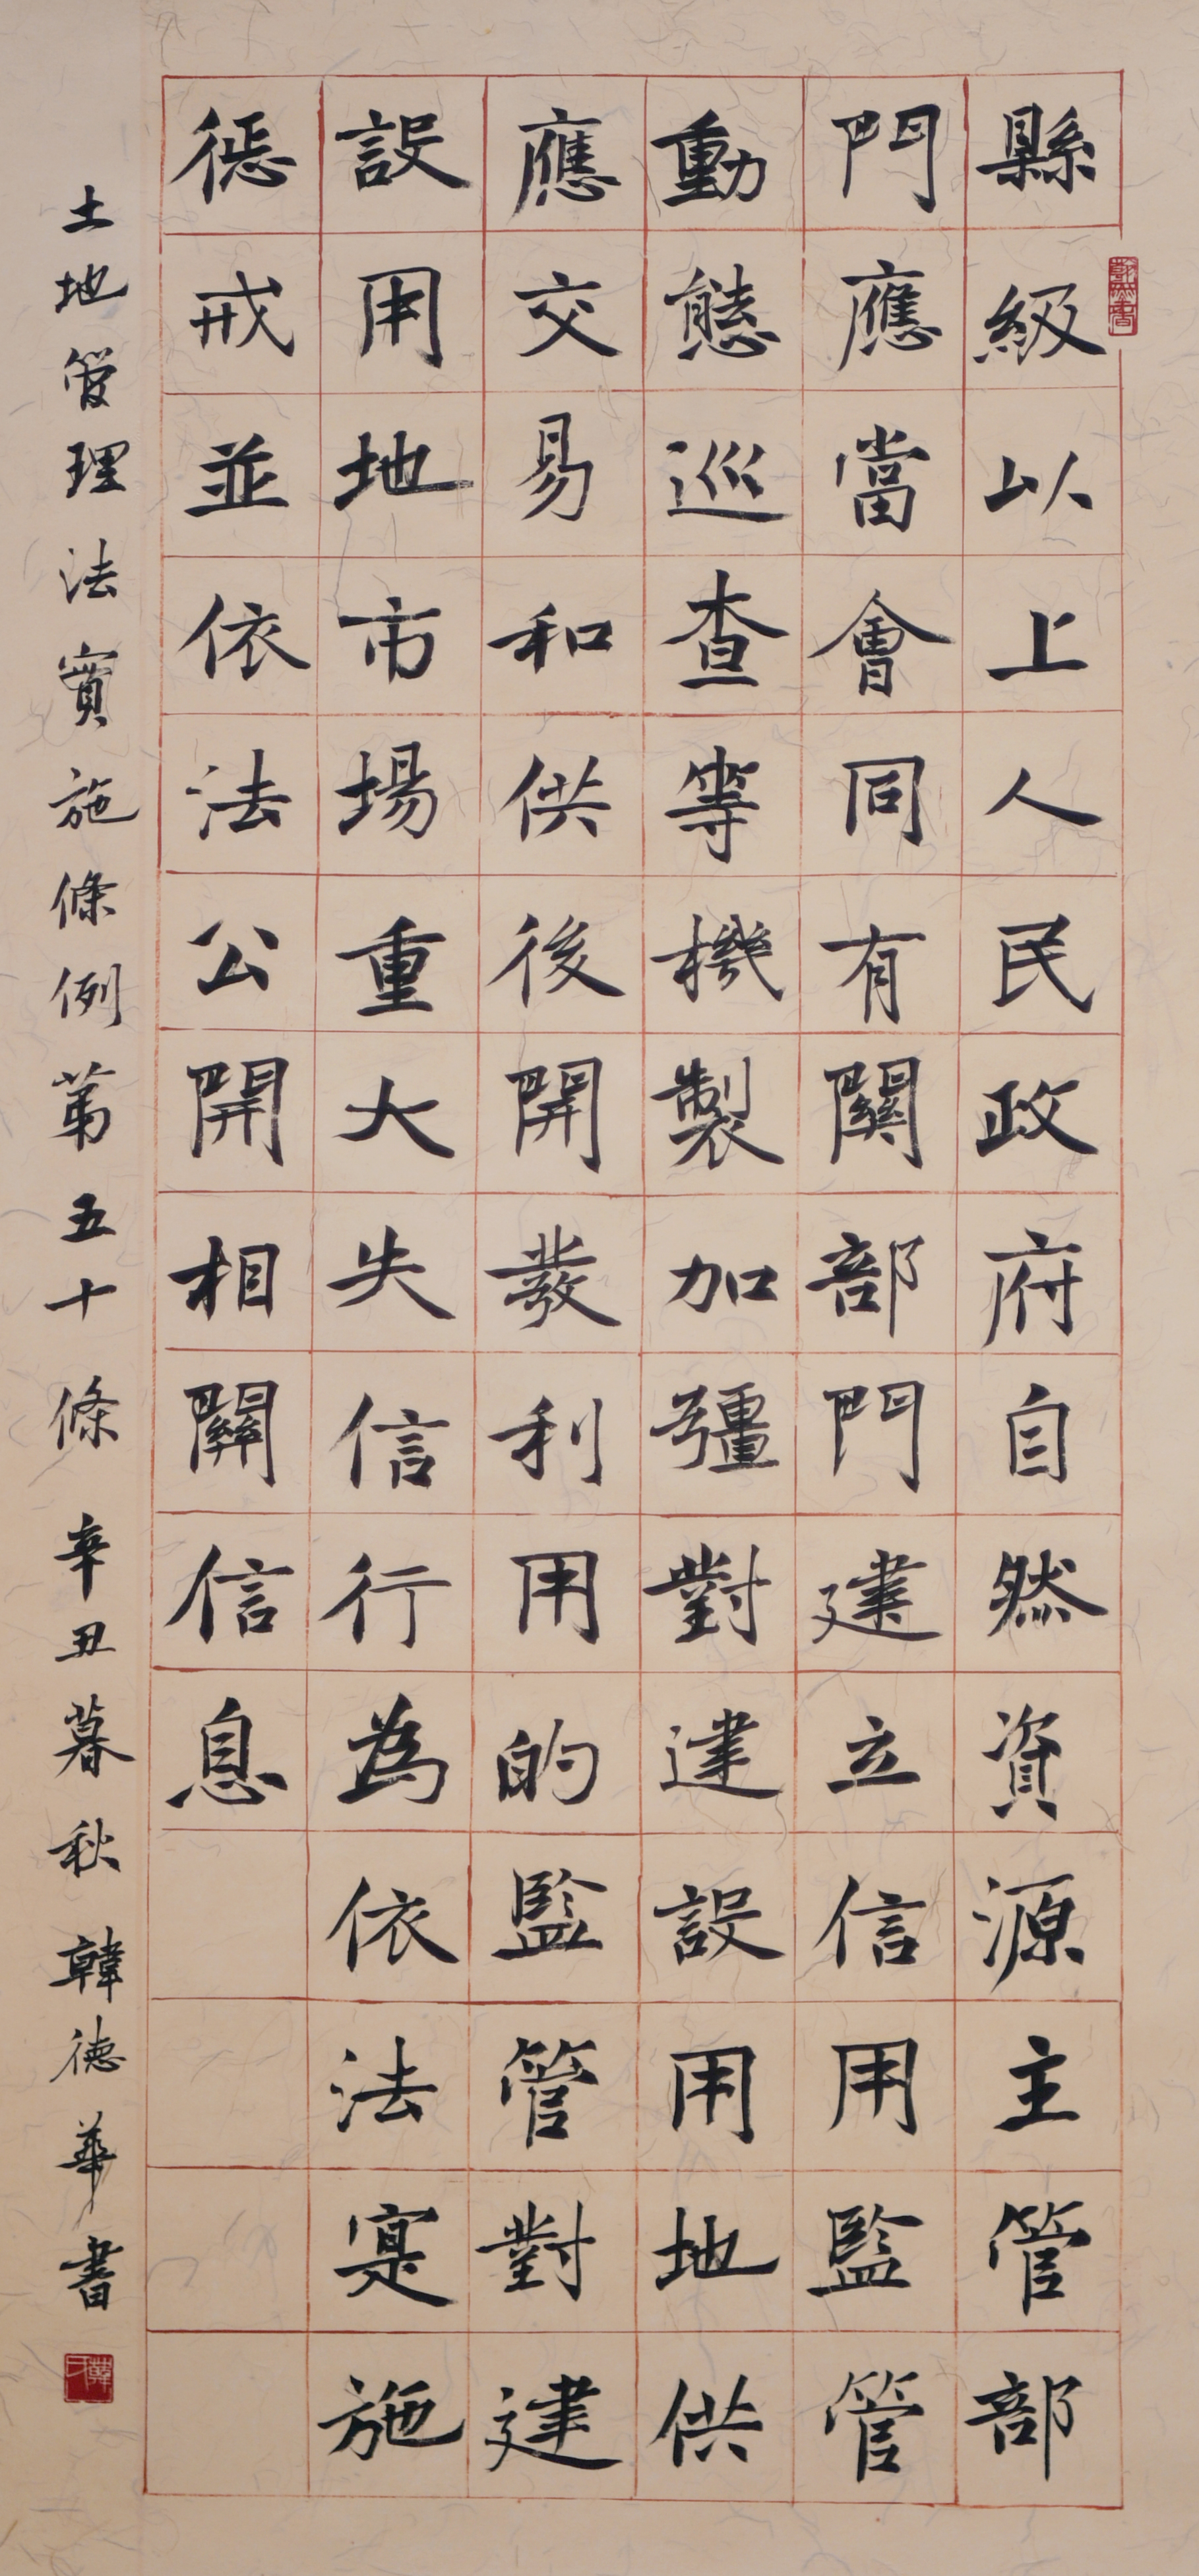 縣級以上人民政府自然資源主管部
門應當會同有關部門建立信用監管
動態巡查等機製加彊對建設用地供
應交易和供後開發利用的監管對建
設用地市場重大失信行為依法寔施
懲戒並依法公開相關信息
土地管理法實施條例第五十條 辛丑暮秋 韓德華書